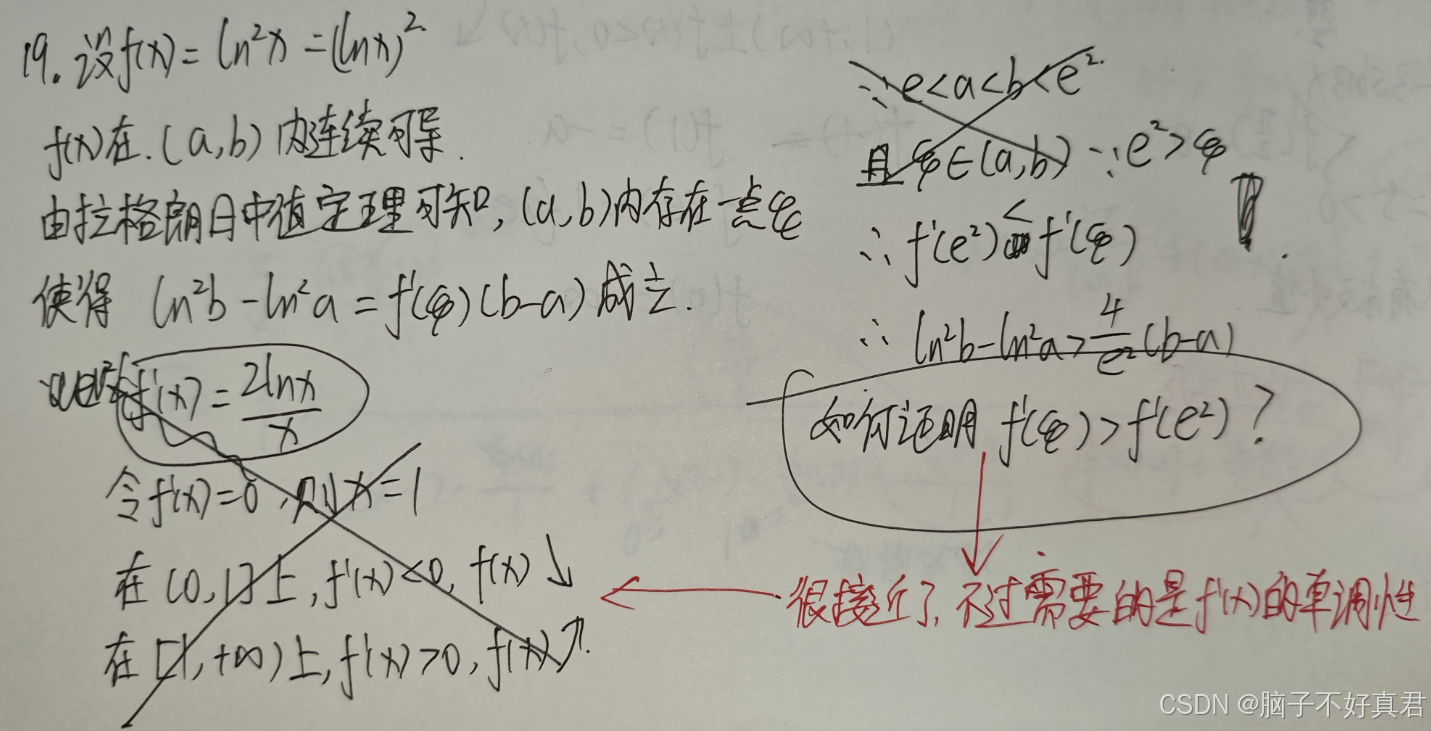 19. 设f(x)=ln²x=(lnx)²
f(x)在(a,b)内连续可导.
由拉格朗日中值定理可知,(a,b)内存在一点ξ
使得 ln²b-ln²a=f'(ξ)(b-a)成立.
f'(x)=2lnx/x
令f'(x)=0,则x=1
在(0,1]上,f'(x)<0,f(x)↓
在[1,+∞)上,f'(x)>0,f(x)↗.
∵e<a<b<e².
且ξ∈(a,b)∵e²>ξ
∴f'(e²)<f'(ξ)
∴ln²b-ln²a>4/e²(b-a)
如何证明f'(ξ)>f'(e²)?
很接近了,不过需要的是f'(x)的单调性
CSDN @脑子不好真君